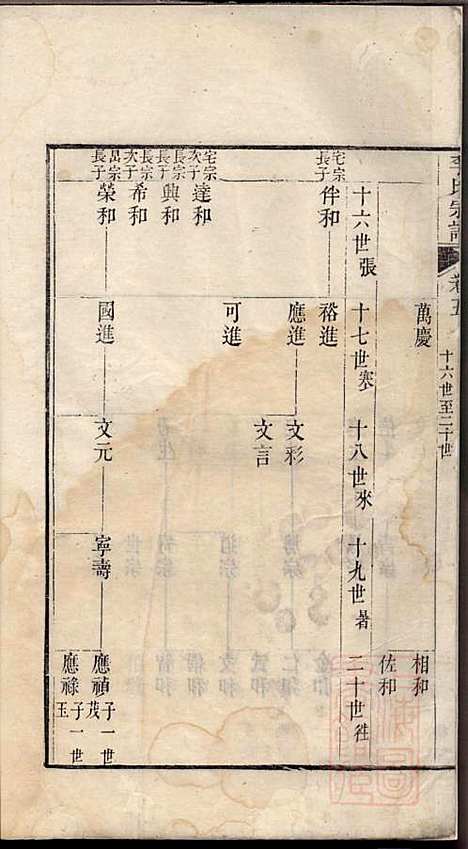 氏宗譜
卷五
十六世至二十世
萬慶
相和
佐和
十六世張
十七世寒
十八世來
十九世暑
二十世往
宅宗長子
伴和
裕進
應進
文彩
文言
宅宗次子
達和
可進
長宗長子
興和
長宗次子
希和
喦宗長子
榮和
國進
文元
寧壽
應禎子一世茂
應祿子一世玉